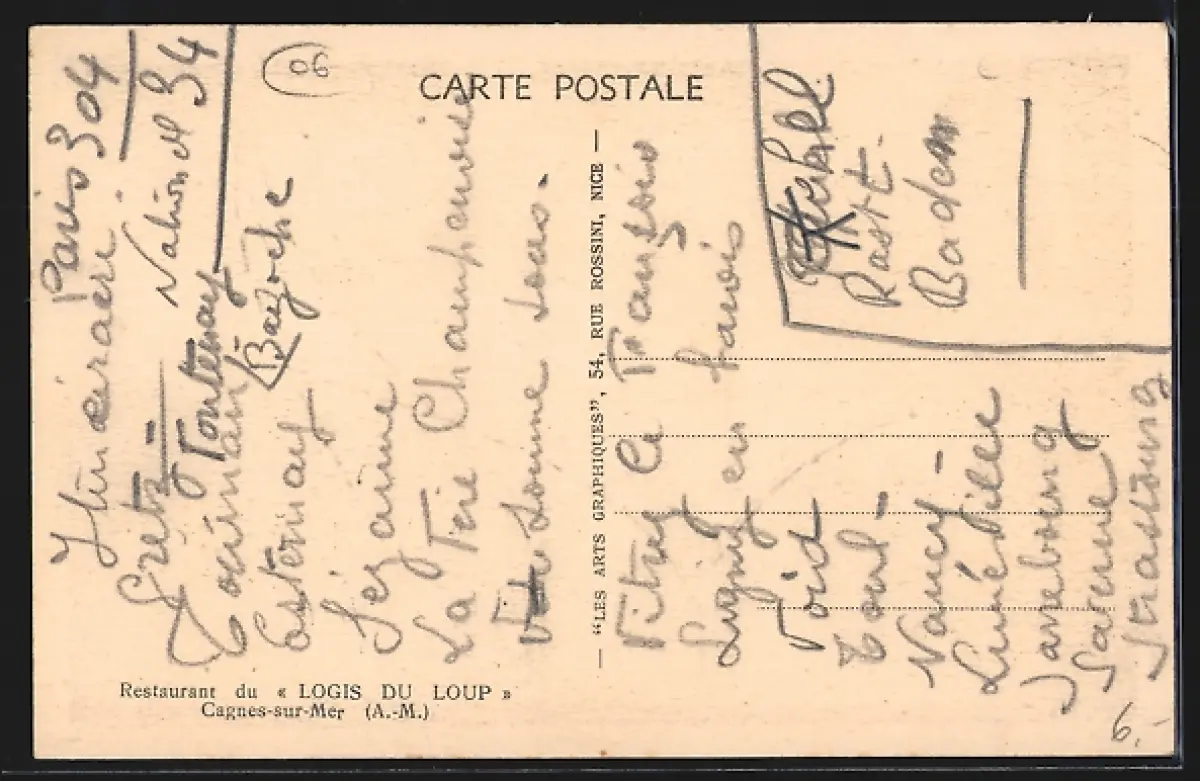 06
CARTE POSTALE
Itinéraire Paris 304
Gretz National 34
Fontenay
Courmain
Bazoche
Esternay
Sezanne
La Fère Champenoise
Somme sous.
— "LES ARTS GRAPHIQUES", 54, RUE ROSSINI, NICE —
Vitry le François
Ligny en barrois
Void
Toul -
Nancy -
Lunéville
Sarrebourg
Saverne
Strasbourg
Kehl
Rast.
Baden
Restaurant du « LOGIS DU LOUP »
Cagnes-sur-Mer (A.-M.)
6.-